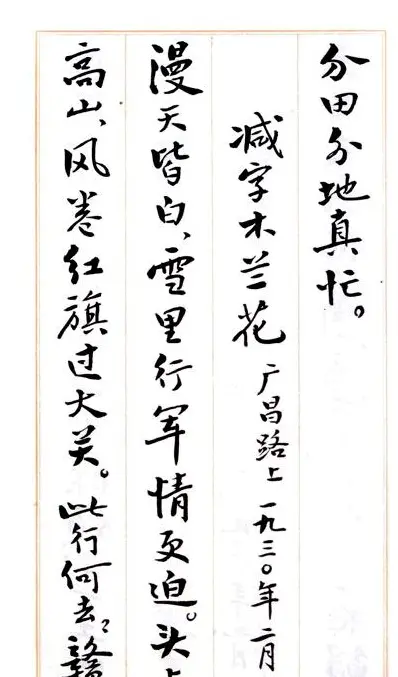 分田分地真忙。
减字木兰花 广昌路上 一九三〇年二月
漫天皆白、雪里行军情更迫。头上
高山、风卷红旗过大关。此行何去?赣